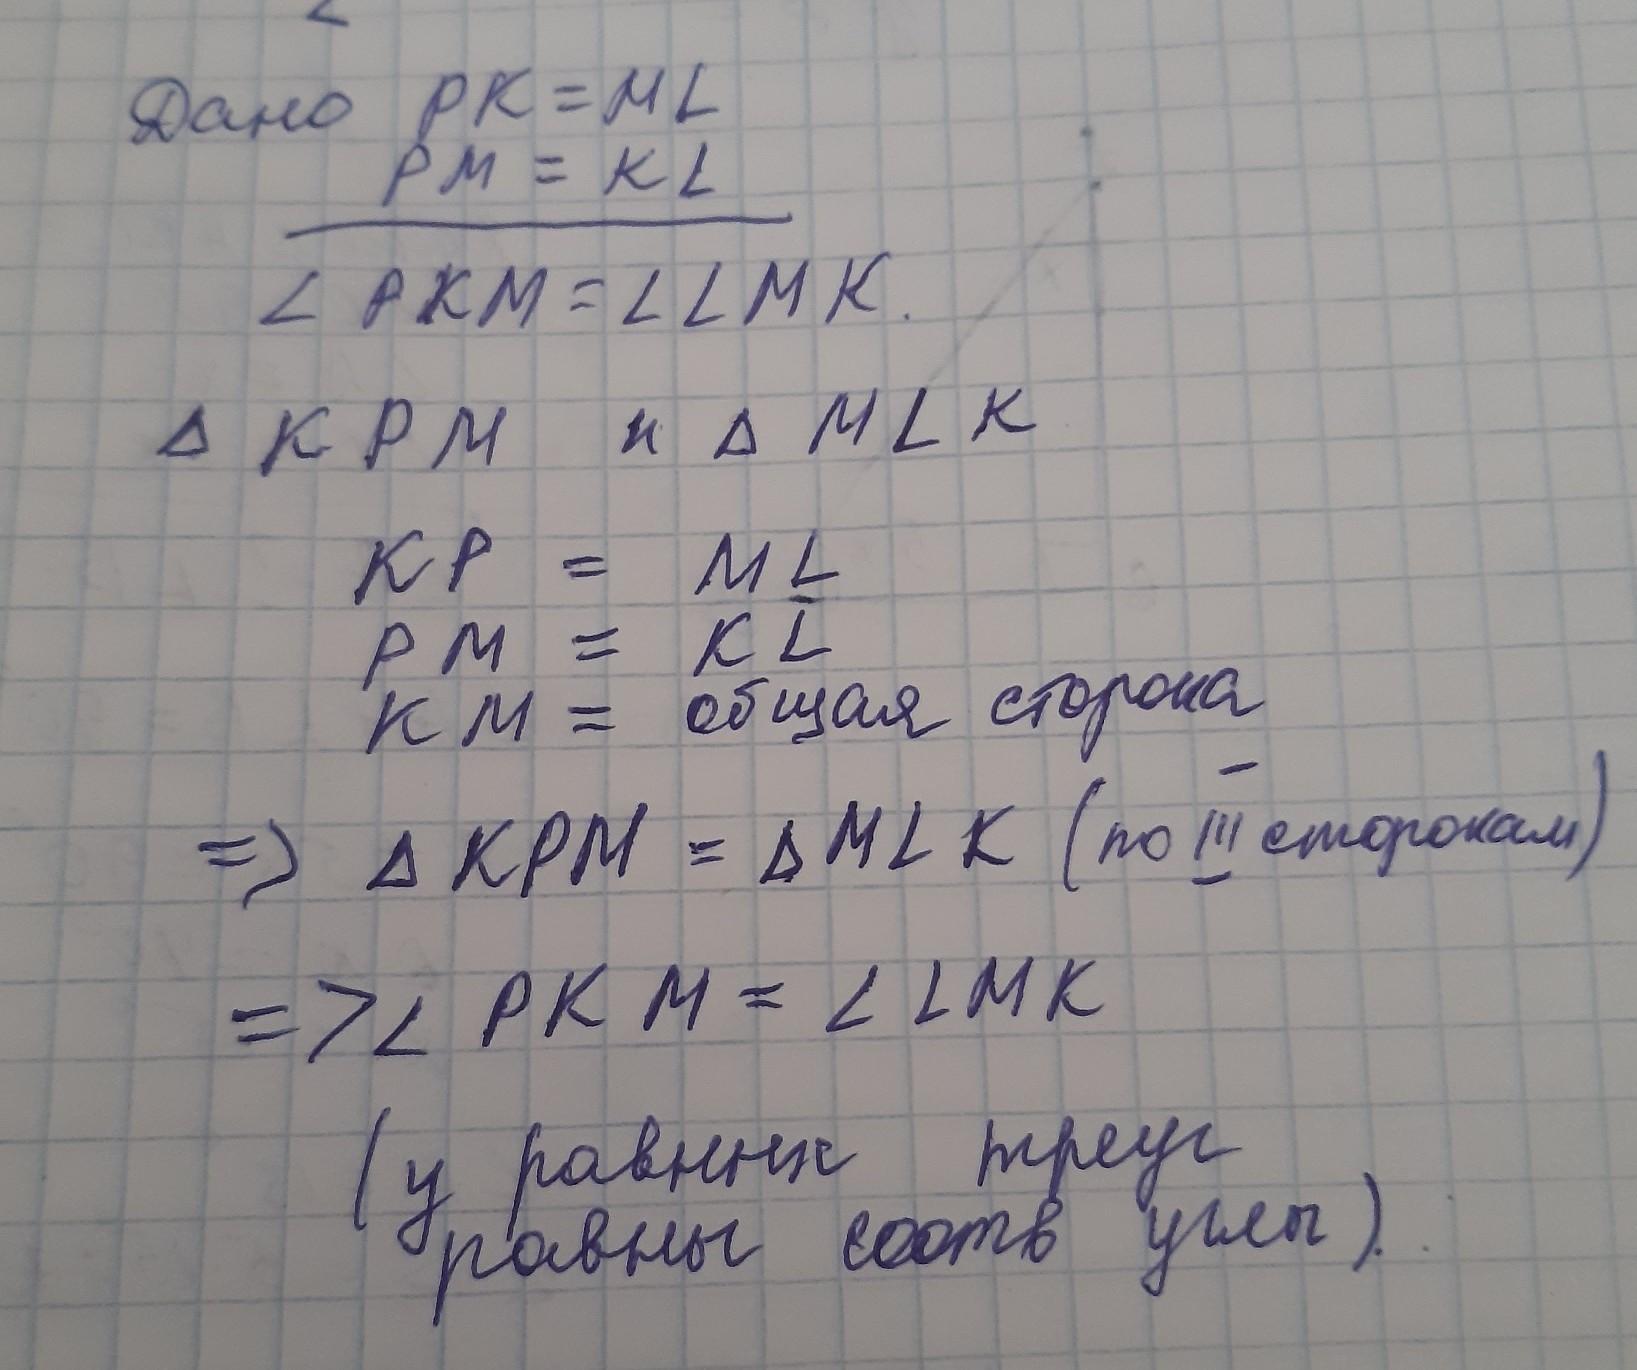 Дано PK = ML
PM = KL
∠ PKM = ∠ LMK.
Δ KPM и Δ MLK
KP = ML
PM = KL
KM = общая сторона
=> Δ KPM = Δ MLK (по III сторонам)
=> ∠ PKM = ∠ LMK
(у равных треуг
равны соотв углы).